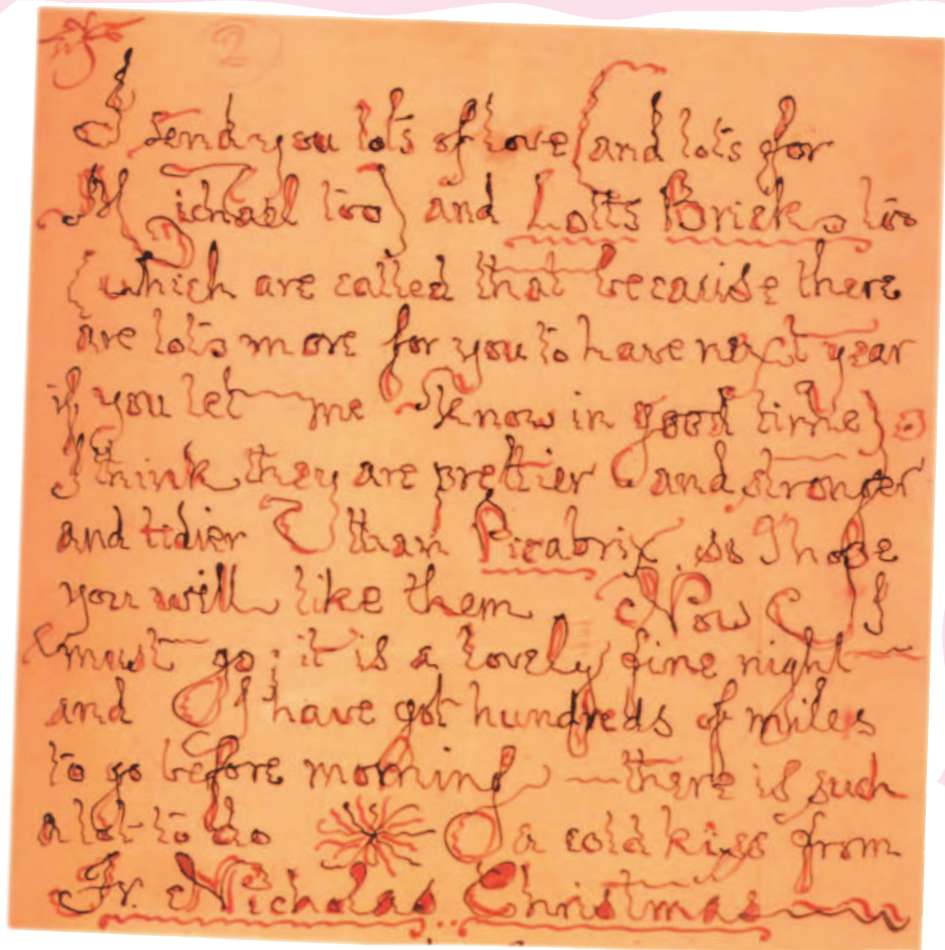 2
I send you lots of love (and lots for
Michael too) and Lotts Bricks too
(which are called that because there
are lots more for you to have next year
if you let me know in good time).
I think they are prettier and stronger
and tidier than Picabrix. So I hope
you will like them. Now I
must go: it is a lovely fine night
and I have got hundreds of miles
to go before morning — there is such
a lot to do. a cold kiss from
Fr. Nicholas Christmas